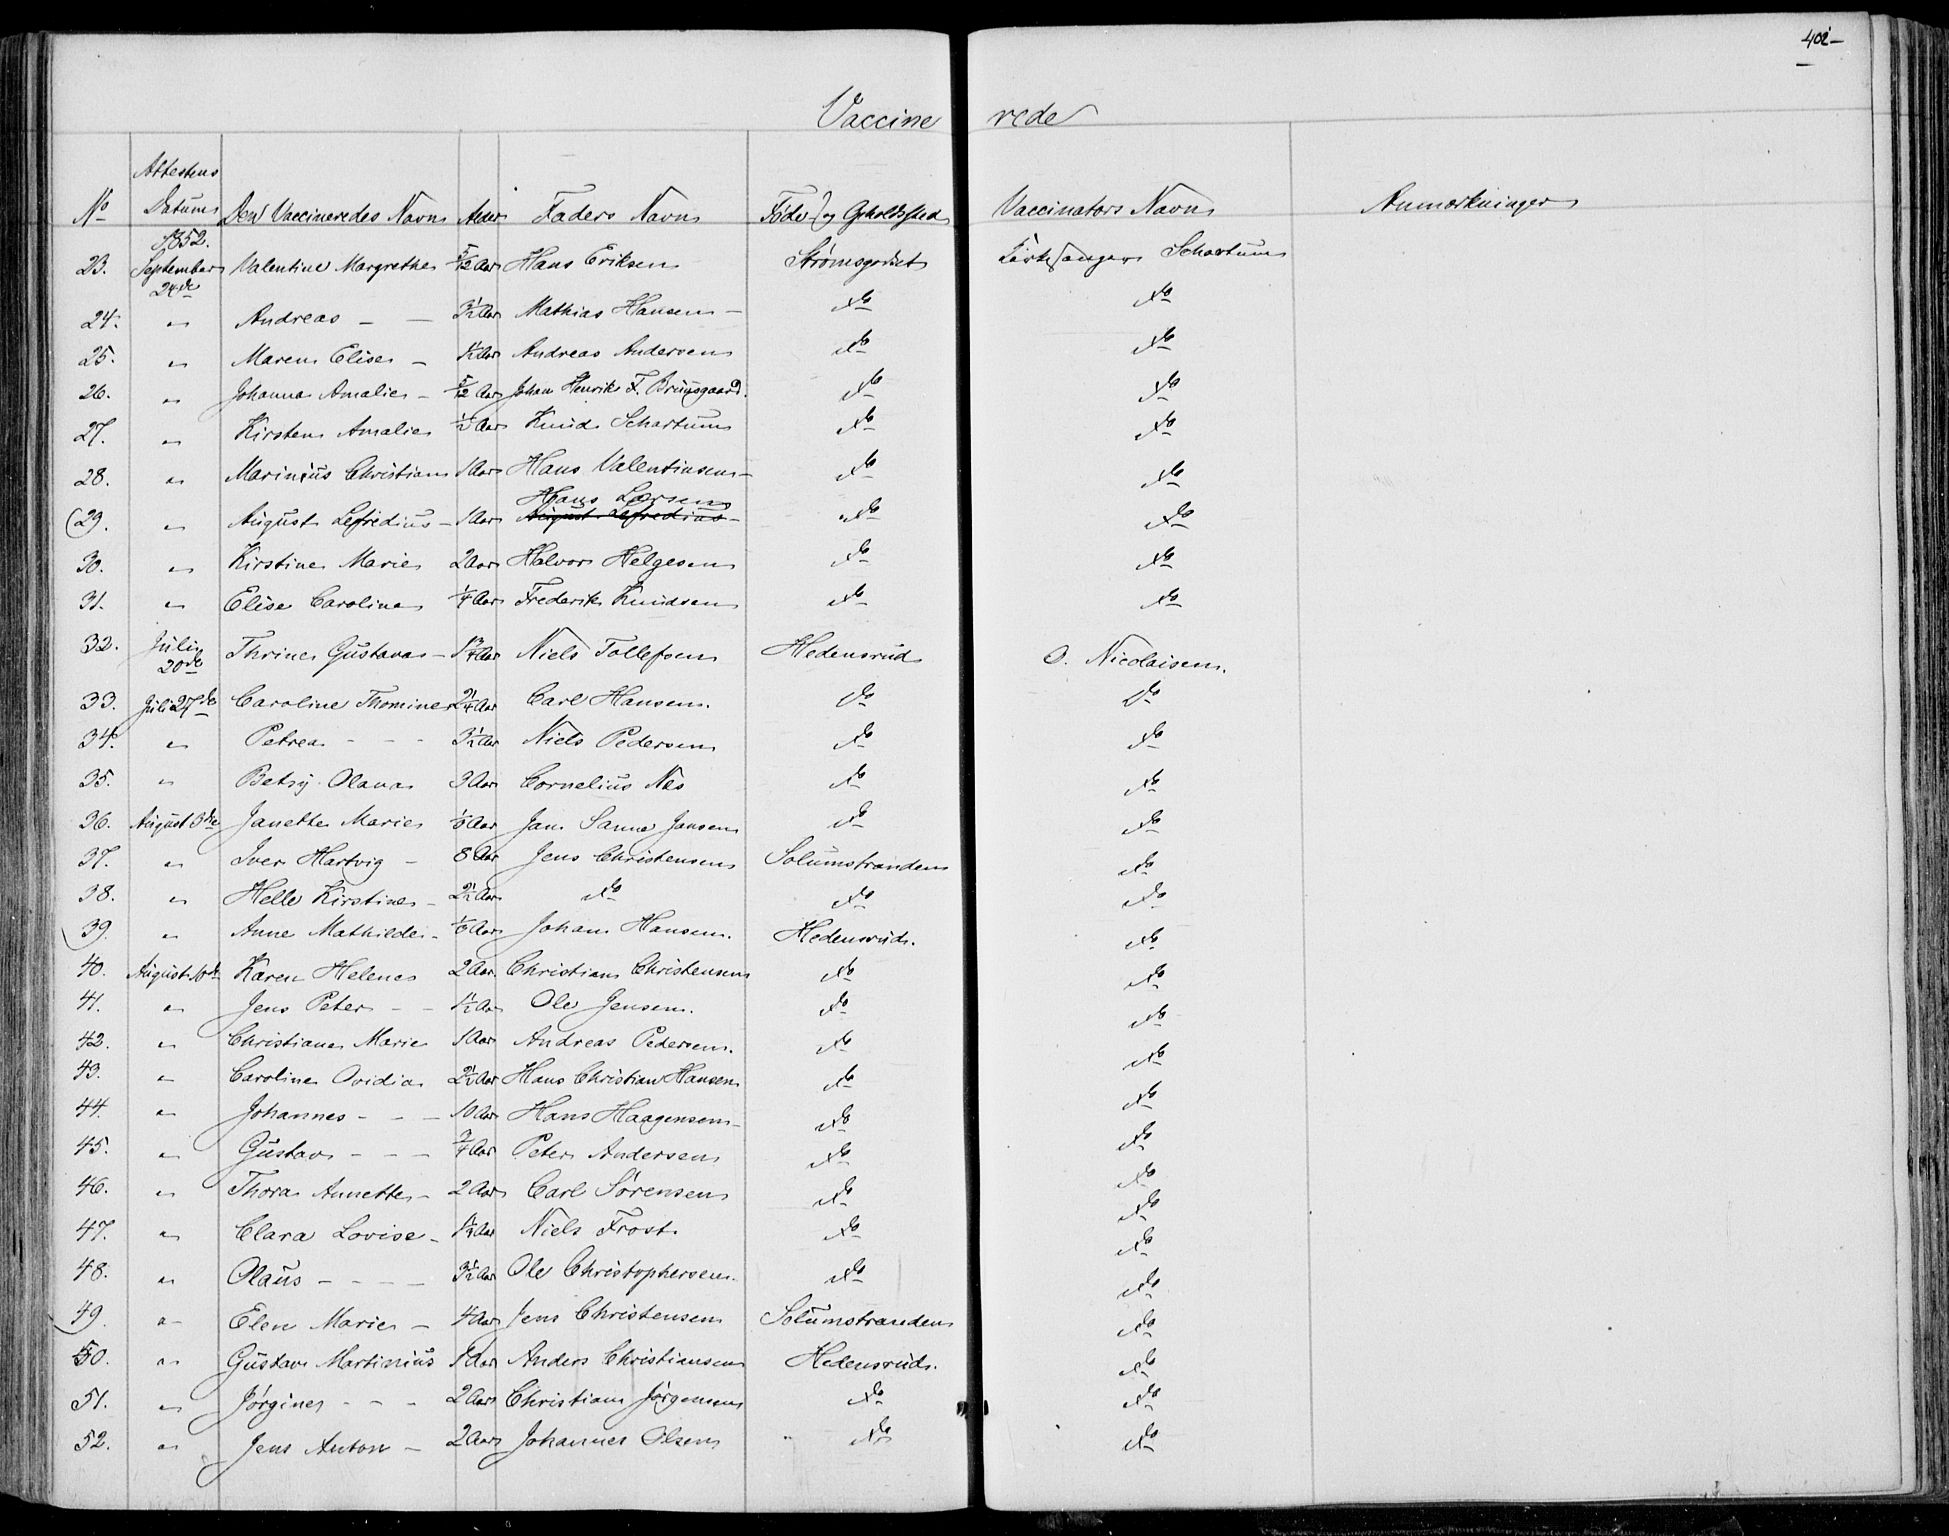 402
Vaccinerede
No Attestens Datum Den Vaccineredes Navn Alder Faders Navn Føde og Opholdssted Vaccinators Navn Anmærkninger
1852.
23. September 24de Valentine Margrethe 5/12 Aar Hans Eriksen Strømsgodset Kirkesanger Schartum
24. " Andreas - - 3½ Aar Mathias Hansen - do do
25. " Maren Elise - Aar Andreas Andersen do do
26. " Johanna Amalie - 5/12 Aar Johan Henrik F. Bruusgaard. do do
27. " Kirsten Amalie ½ Aar Knud Schartum do do
28. " Marinius Christian 1 Aar Hans Valentinsen - do do
Hans Larsen
(29. " August Lefredius - 1 Aar August Lefredius - do do
30. " Kirstine Marie 2 Aar Halvor Helgesen do do
31. " Elise Caroline ¼ Aar Frederik Knudsen do do
32. Juli 20de Thrine Gustava - 1¾ Aar Niels Tollefsen Hedensrud O. Nicolaisen.
33. Juli 27de Caroline Thomine 2¼ Aar Carl Hansen. do do
34. " Petrea - - - 3½ Aar Niels Pedersen do do
35. " Betsy Olava 3 Aar Cornelius Næs do do
36. August 3de Janette Marie Aar Jan Sanne Jansen do do
37. " Iver Hartvig - 8 Aar Jens Christensen Solumstranden do
38. " Helle Kirstine - 2½ Aar do do do
39. " Anne Mathilde - Aar Johan Hansen. Hedensrud. do
40. August 10de Karen Helene 2 Aar Christian Christensen do do
41. " Jens Peter - - 1½ Aar Ole Jensen. do do
42. " Christiane Marie 1 Aar Andreas Pedersen. do do
43. " Caroline Ovidia 2½ Aar Hans Christian Hansen do do
44. " Johannes - - - 10 Aar Hans Haagensen - do do
45. " Gustav - - - ¾ Aar Peter Andersen do do
46. " Thora Annette - 2 Aar Carl Sørensen do do
47. " Clara Lovise - Aar Niels Frost. do do
48. " Olaus - - - - 3½ Aar Ole Christophersen. do do
49. " Elen Marie - 4 Aar Jens Christensen Solumstranden do
50. " Gustav Martinius 1 Aar Anders Christiansen Hedensrud. do
51. " Jørgine - - - 2 Aar Christian Jørgensen do do
52. " Jens Anton - 2 Aar Johannes Olsen " do do